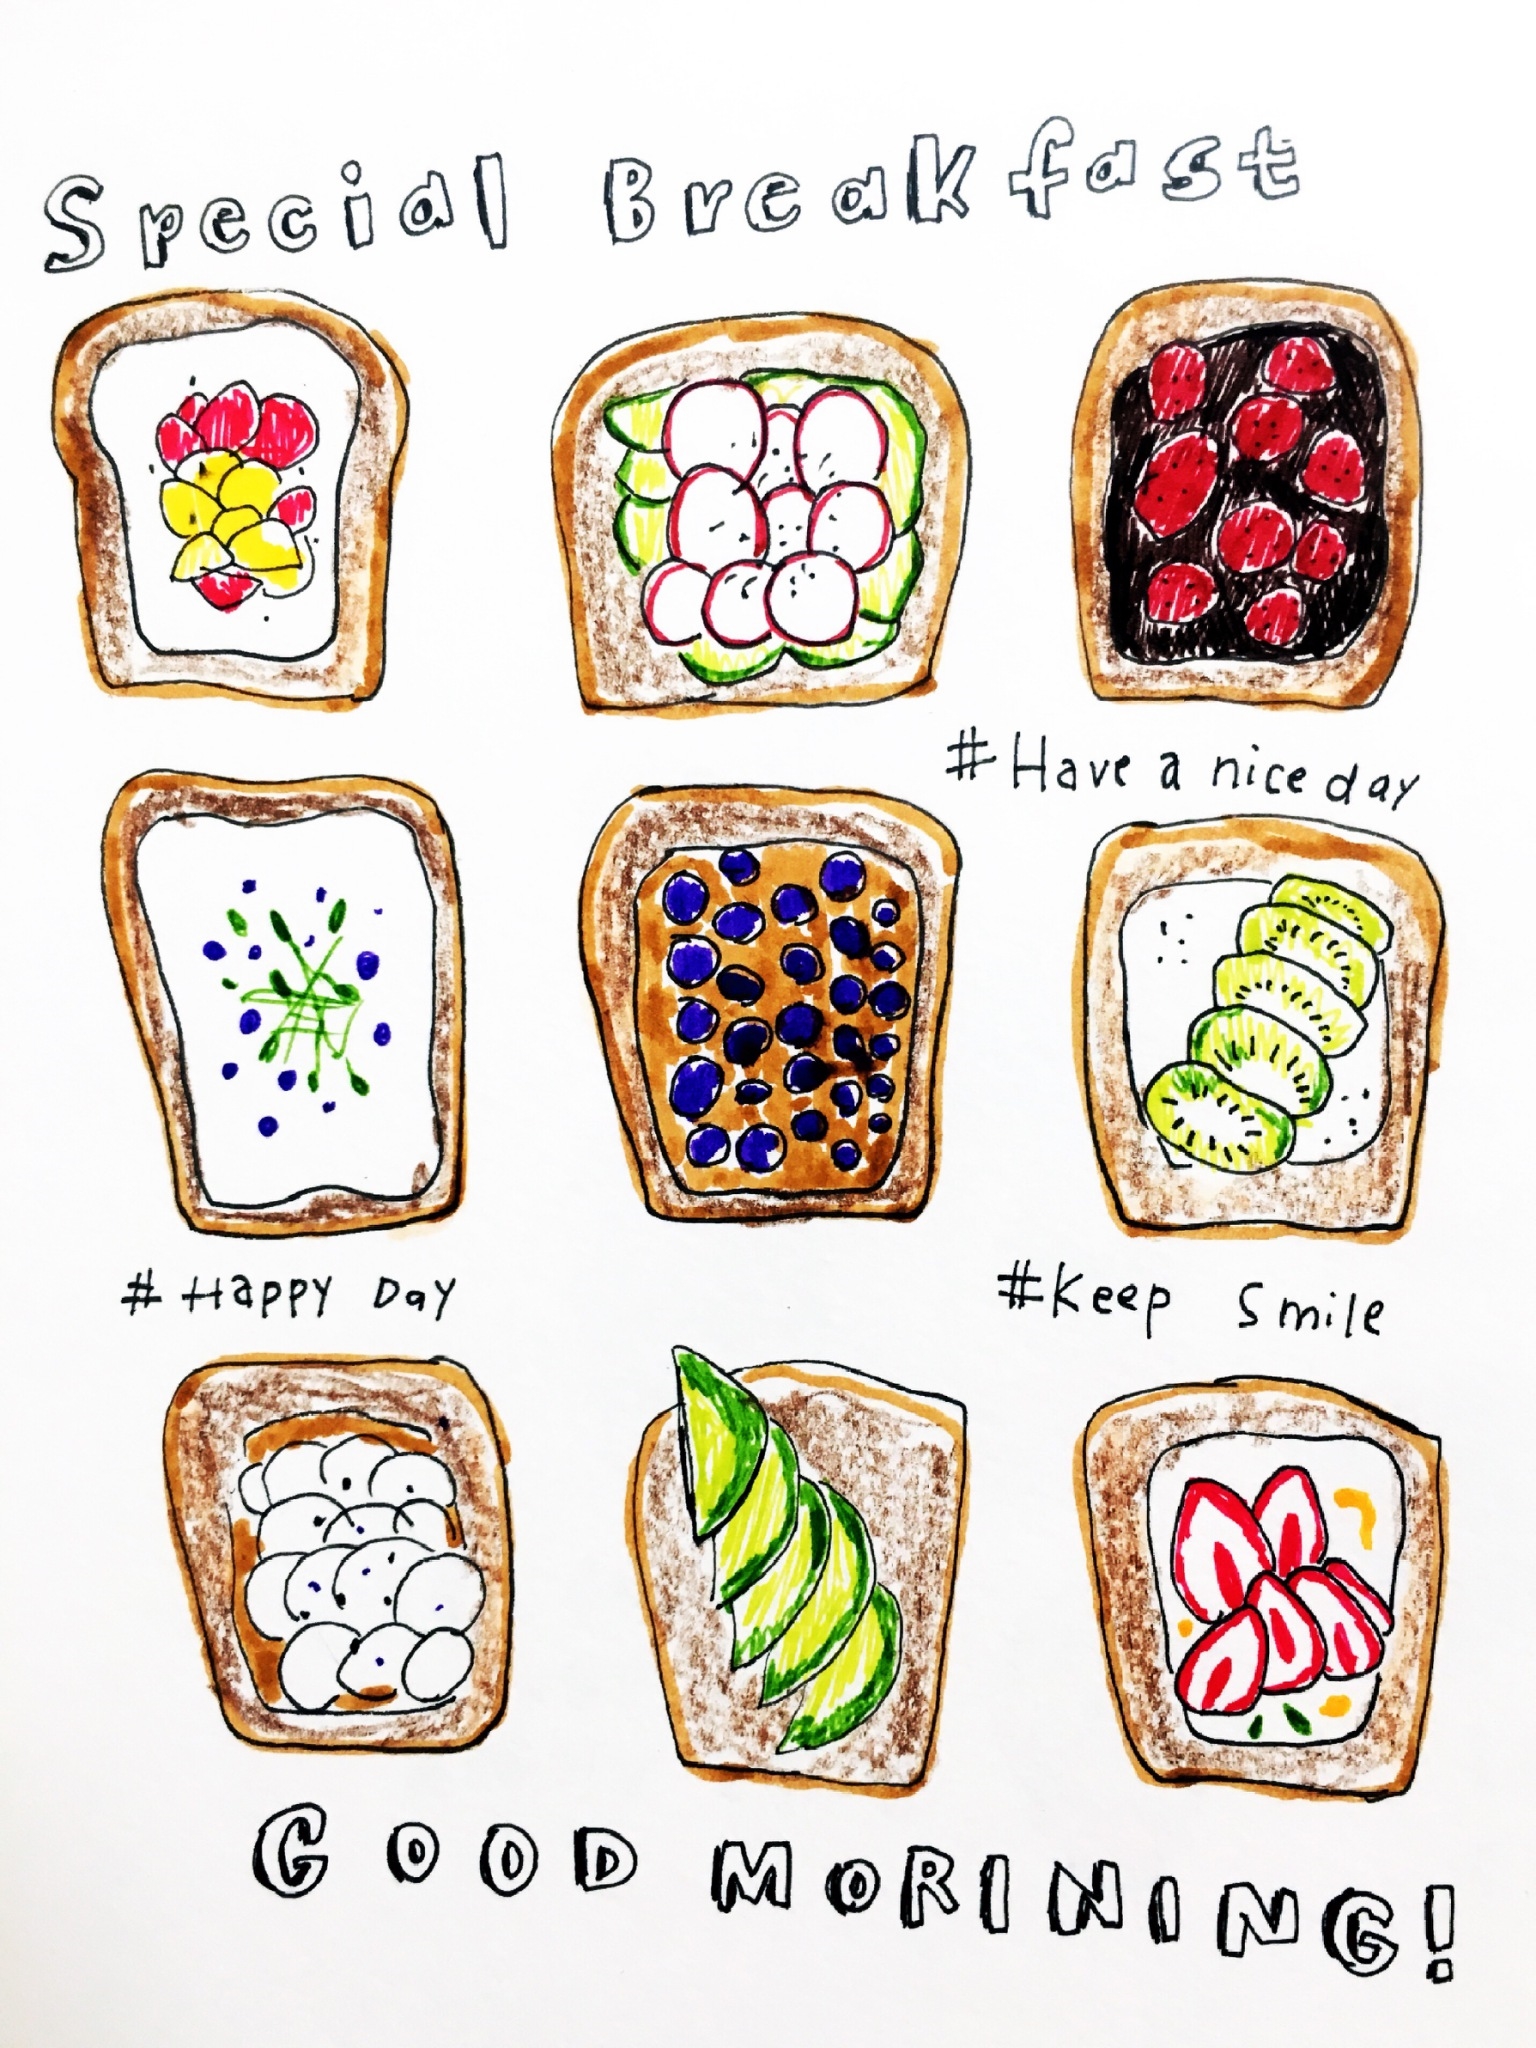 Special Breakfast
#Have a nice day
#Happy Day
#Keep Smile
GOOD MORINING!